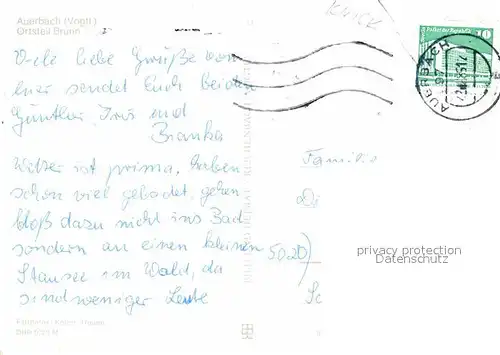 Auerbach (Vogtl.)
Ortsteil Brunn
KNICK
Viele liebe Grüße von
hier sendet Euch beiden
Günther, Iris und
Bianka
Wetter ist prima, haben
schon viel gebadet, gehen
bloß dazu nicht ins Bad
sondern an einen kleinen
Stausee im Wald, da
sind weniger Leute
10
AUERBACH
Familie
50.20)
privacy protection
Datenschutz